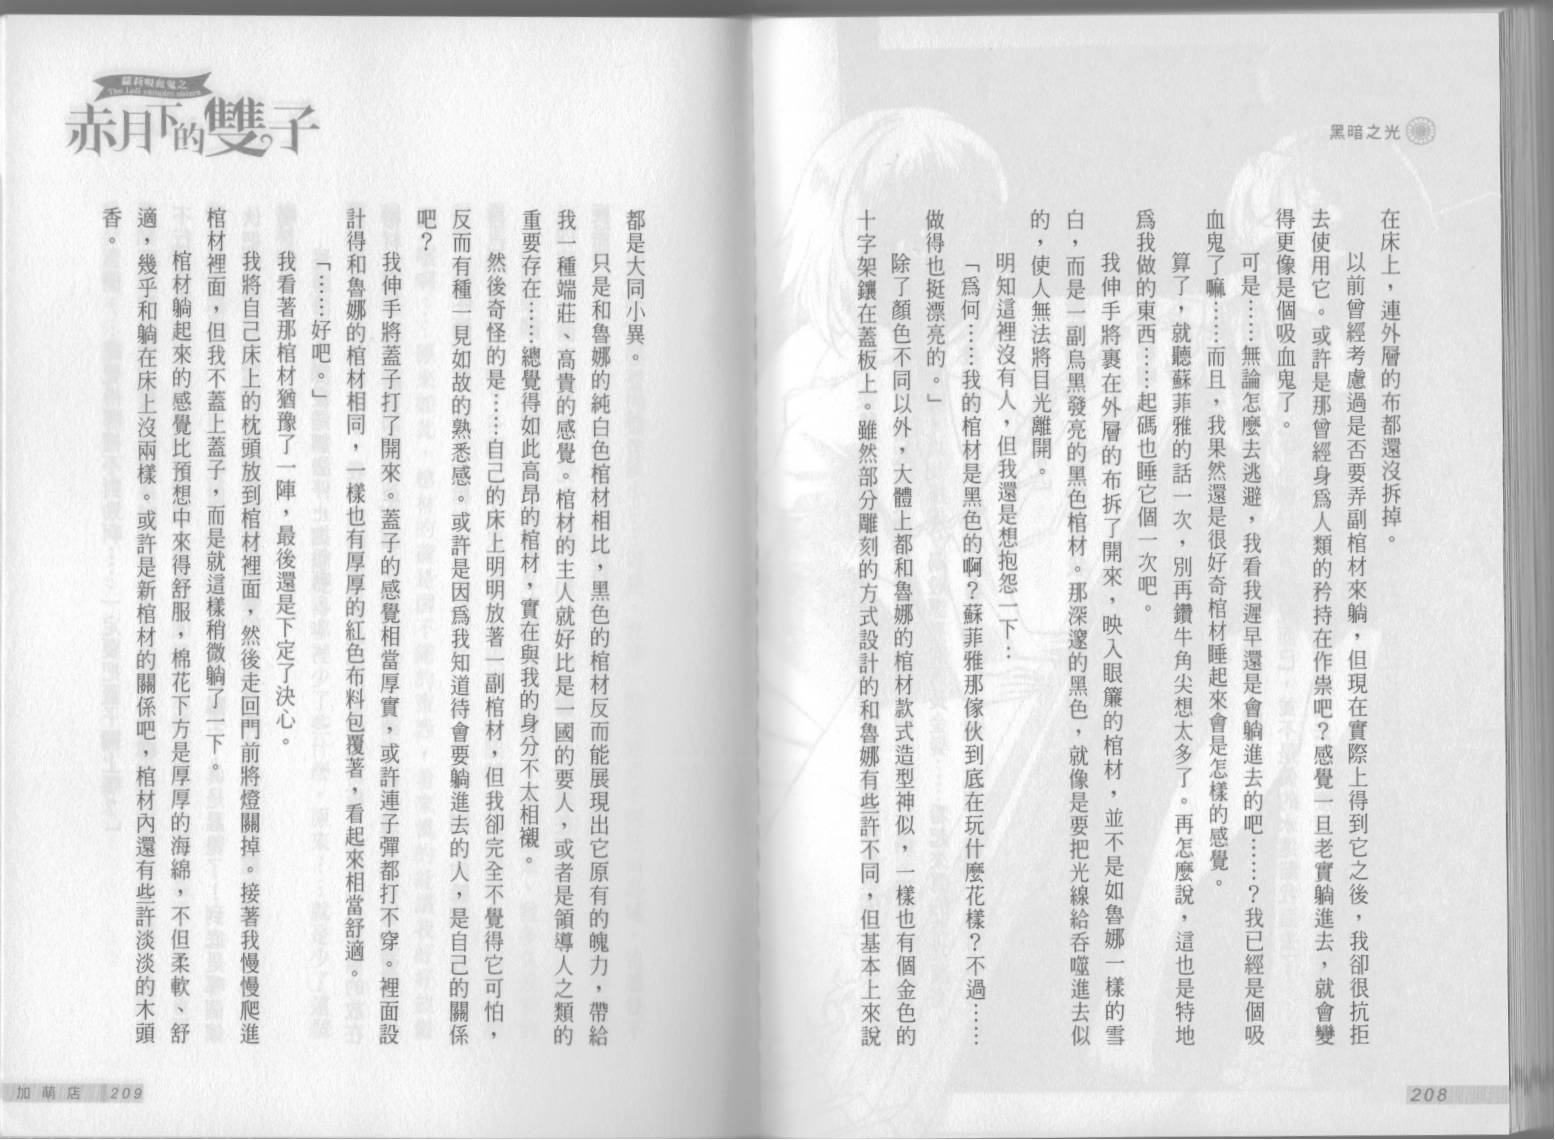 黑暗之光
在床上，連外層的布都還沒拆掉。
以前曾經考慮過是否要弄副棺材來躺，但現在實際上得到它之後，我卻很抗拒
去使用它。或許是那曾經身為人類的矜持在作祟吧？感覺一旦老實躺進去，就會變
得更像是個吸血鬼了。
可是……無論怎麼去逃避，我看我遲早還是會躺進去的吧……？我已經是個吸
血鬼了嘛……而且，我果然還是很好奇棺材睡起來會是怎樣的感覺。
算了，就聽蘇菲雅的話一次，別再鑽牛角尖想太多了。再怎麼說，這也是特地
為我做的東西……起碼也睡它個一次吧。
我伸手將裹在外層的布拆了開來，映入眼簾的棺材，並不是如魯娜一樣的雪
白，而是一副烏黑發亮的黑色棺材。那深邃的黑色，就像是要把光線給吞噬進去似
的，使人無法將目光離開。
明知這裡沒有人，但我還是想抱怨一下…
「為何……我的棺材是黑色的啊？蘇菲雅那傢伙到底在玩什麼花樣？不過……
做得也挺漂亮的。」
除了顏色不同以外，大體上都和魯娜的棺材款式造型神似，一樣也有個金色的
十字架鑲在蓋板上。雖然部分雕刻的方式設計的和魯娜有些許不同，但基本上來說
208
蘿莉吸血鬼之
The Loli vampire sisters
赤月下的雙子
都是大同小異。
只是和魯娜的純白色棺材相比，黑色的棺材反而能展現出它原有的魄力，帶給
我一種端莊、高貴的感覺。棺材的主人就好比是一國的要人，或者是領導人之類的
重要存在……總覺得如此高昂的棺材，實在與我的身分不太相襯。
然後奇怪的是……自己的床上明明放著一副棺材，但我卻完全不覺得它可怕，
反而有種一見如故的熟悉感。或許是因為我知道待會要躺進去的人，是自己的關係
吧？
我伸手將蓋子打了開來。蓋子的感覺相當厚實，或許連子彈都打不穿。裡面設
計得和魯娜的棺材相同，一樣也有厚厚的紅色布料包覆著，看起來相當舒適。
「……好吧。」
我看著那棺材猶豫了一陣，最後還是下定了決心。
我將自己床上的枕頭放到棺材裡面，然後走回門前將燈關掉。接著我慢慢爬進
棺材裡面，但我不蓋上蓋子，而是就這樣稍微躺了一下。
棺材躺起來的感覺比預想中來得舒服，棉花下方是厚厚的海綿，不但柔軟、舒
適，幾乎和躺在床上沒兩樣。或許是新棺材的關係吧，棺材內還有些許淡淡的木頭
香。
加萌店 209